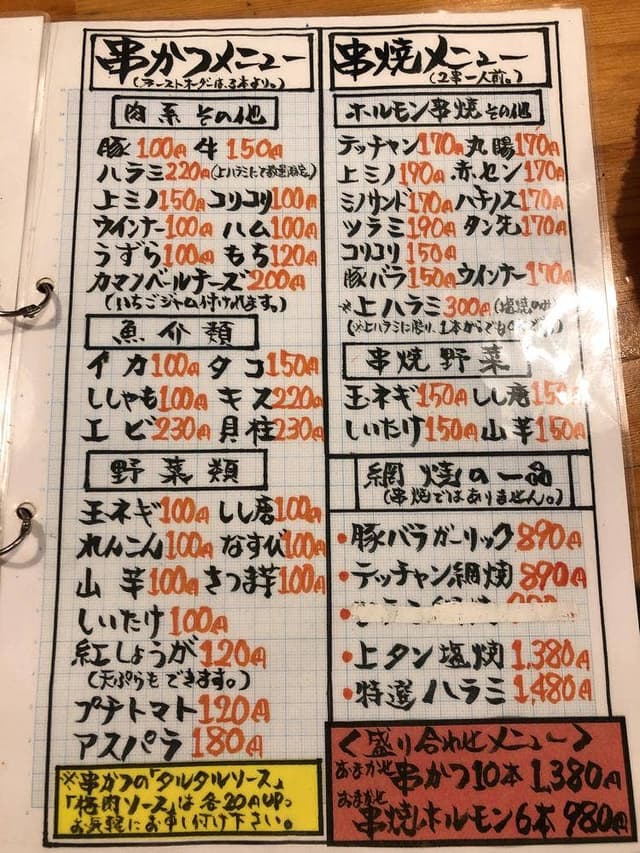 串かつメニュー
(ラーストオーダーは、3本より。)
肉系その他
豚100円 牛150円
ハラミ220円(上ハラミにて数量限定。)
上ミノ150円 コリコリ100円
ウインナー100円 ハム100円
うずら100円 もち120円
カマンベールチーズ200円
(いちごジャム付けれます。)
魚介類
イカ100円 タコ150円
ししゃも100円 キス220円
エビ230円 貝柱230円
野菜類
玉ネギ100円 しし唐100円
れんこん100円 なすび100円
山芋100円 さつま芋100円
しいたけ100円
紅しょうが120円
(天ぷらもできます。)
プチトマト120円
アスパラ180円
※串かつの「タルタルソース」
「梅肉ソース」は各20円UP。
お気軽にお申し付け下さい。
串焼メニュー
(2串一人前。)
ホルモン串焼その他
テッチャン170円 丸腸170円
上ミノ190円 赤セン170円
ミノサンド170円 ハチノス170円
ツラミ190円 タン先170円
コリコリ150円
豚バラ150円 ウインナー170円
※上ハラミ300円(塩焼のみ)
(※上ハラミに限り、1本からでもOKです。)
串焼野菜
玉ネギ150円 しし唐150
しいたけ150円 山芋150円
網焼の一品
(串焼ではありません。)
・豚バラガーリック890円
・テッチャン網焼890円
・上タン塩焼1,380円
・特選ハラミ1,480円
<盛り合わせメニュー>
おまかせ串かつ10本1,380円
おまかせ
串焼ホルモン6本980円